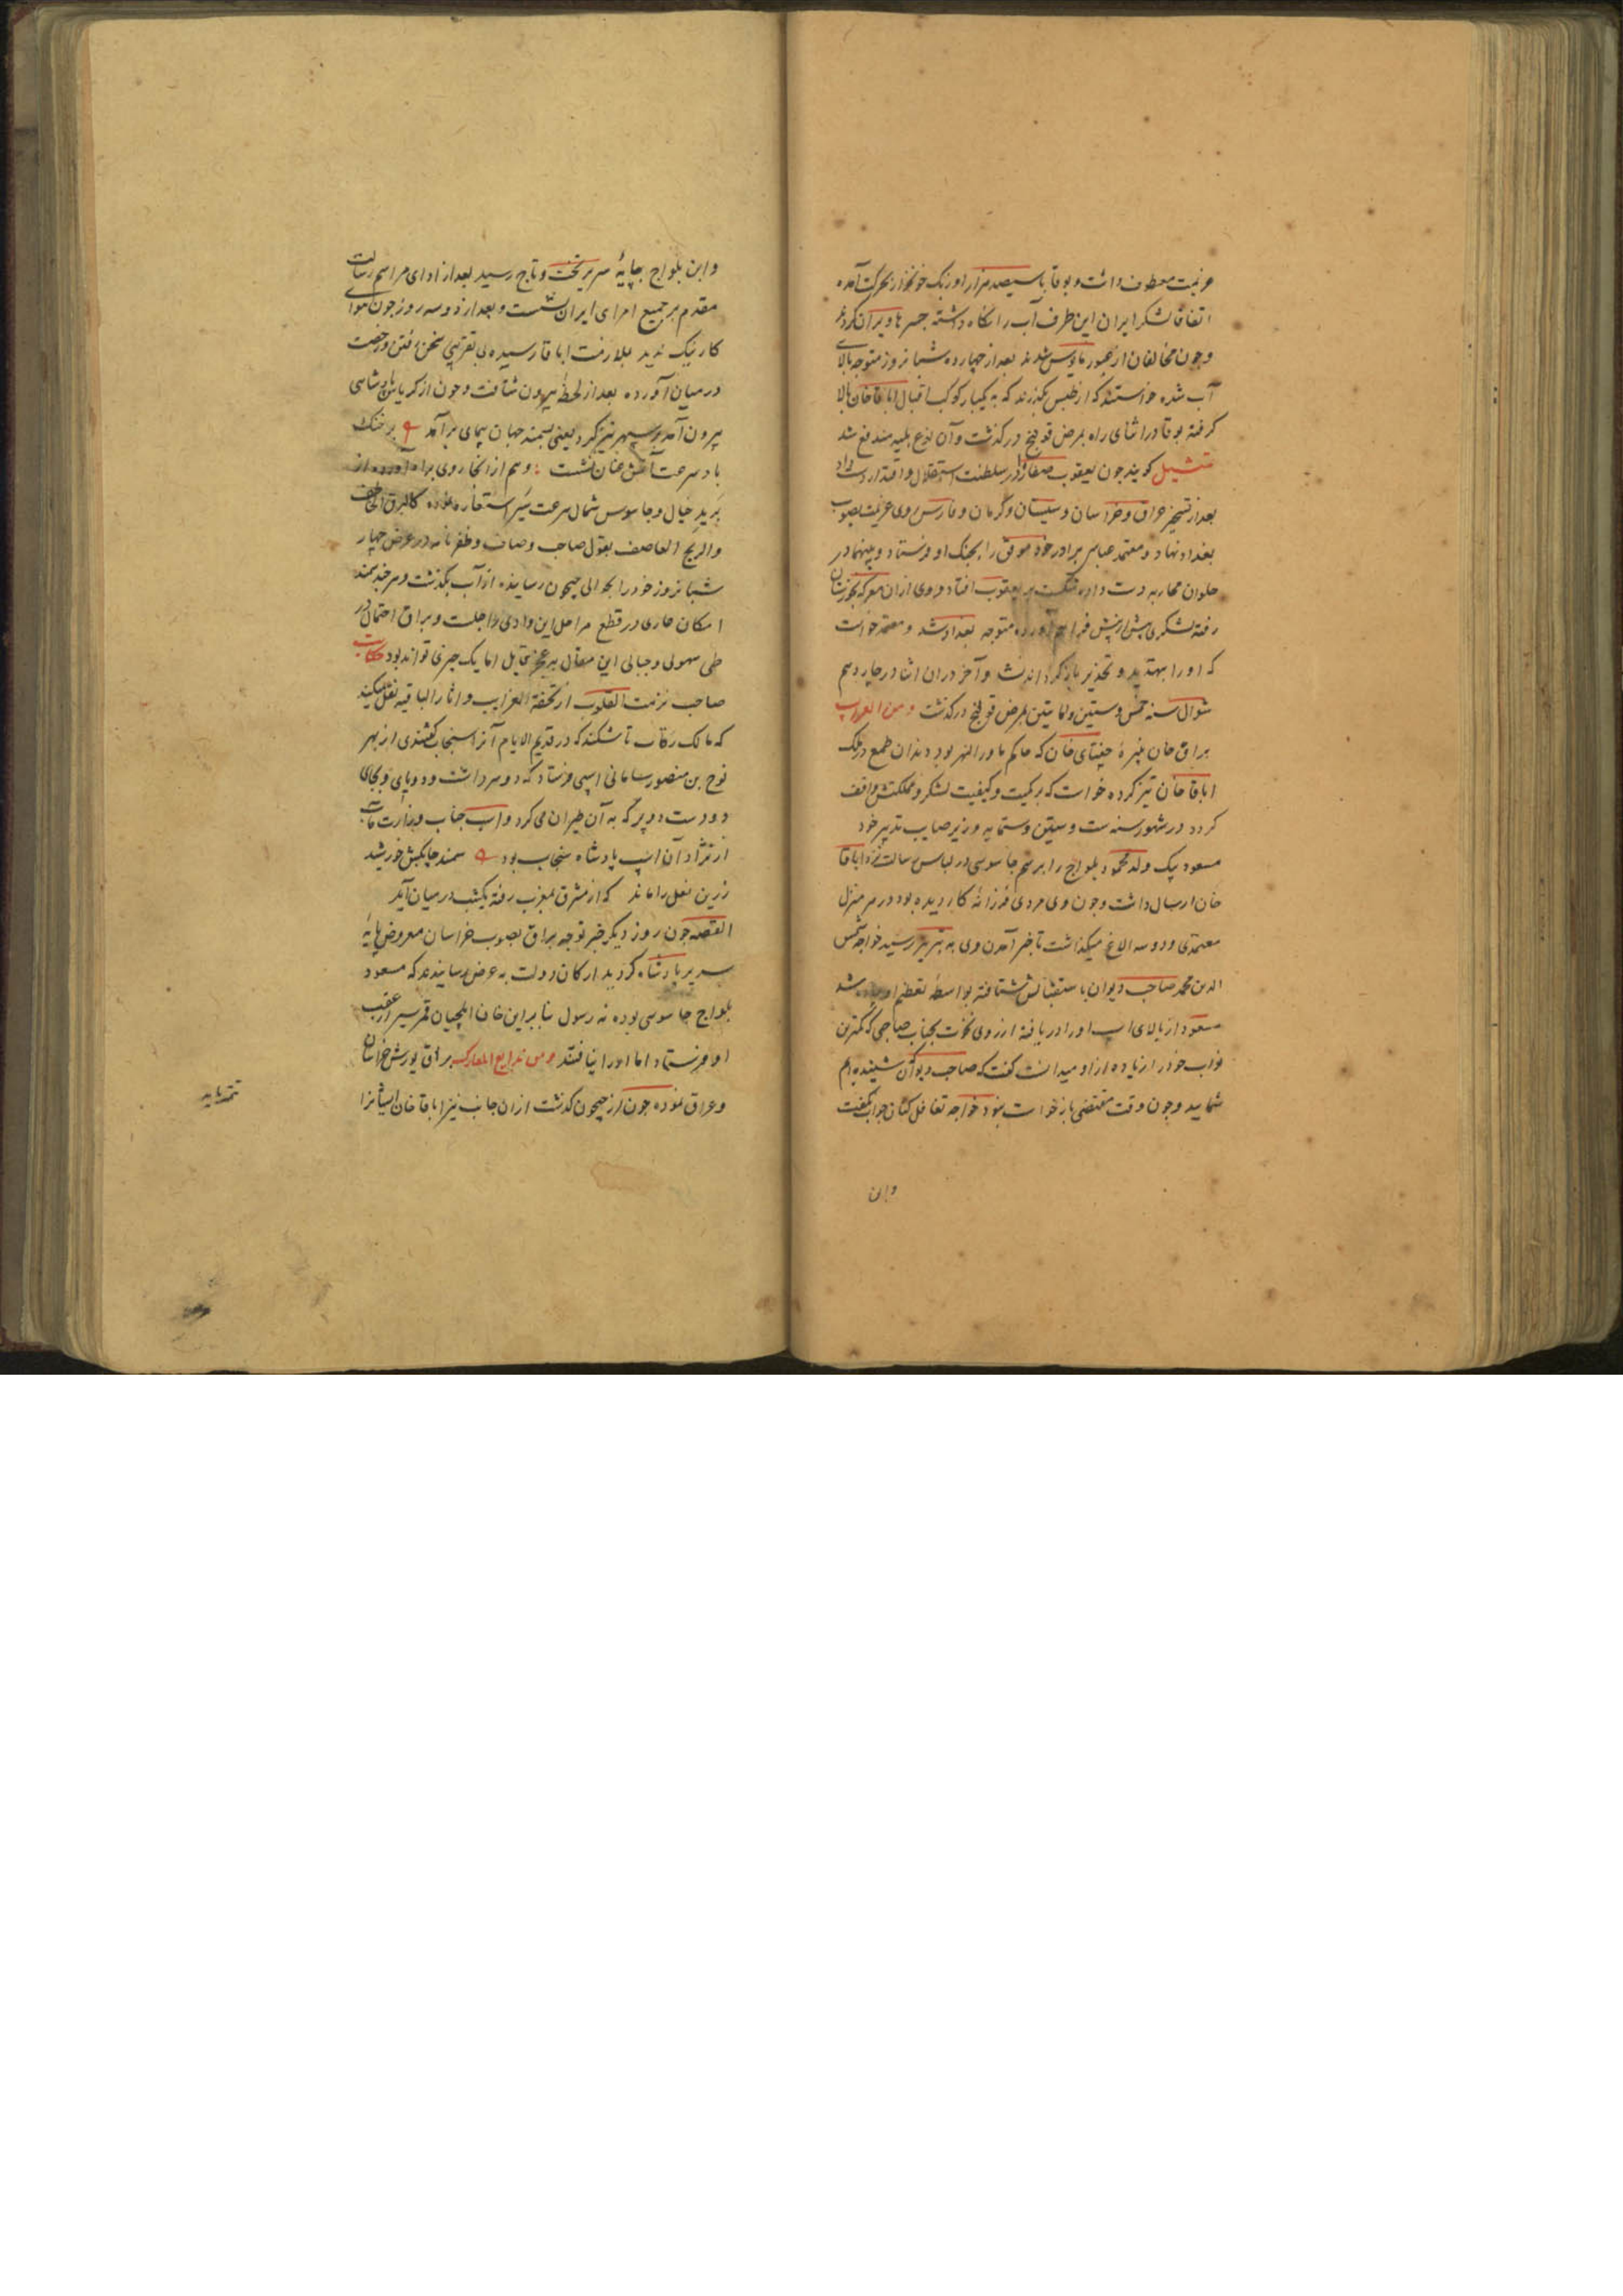 عزیمت معطوف داشت و بوقا با سیصد هزار اوزبک خونخوار بحرکت آمده
اتفاقا لشکر ایران این طرف آب را نگاه داشته جسرها ویران کردند
و چون مخالفان از عبور مأیوس شدند بعد از چهارده شبانروز متوجه بالای
آب شده خواستند که از بگذرند که به یکبار کوکب اقبال اباقا خان بالا
کرفته بوقا در اثنای راه بمرض قولنج درکذشت و آن نوع بلیه مندفع شد
تمثیل کویند چون یعقوب صفار را در سلطنت استقلال و اقتدار دست داد
بعد از تسخیر عراق و خراسان و سیستان و کرمان و فارس روی عزیمت بصوب
بغداد نهاد و معتمد عباسی برادر خود موفق را بجنک او فرستاد و بینهما در
حلوان محاربه دست داده شکست بر یعقوب افتاد و وی ازان معرکه بخوزستان
رفته لشکری بیش از پیش فراهم آورده متوجه بغداد شد و معتمد خواست
که او را بتهدید و تحذیر باز کرداند نشد و آخر دران اثنا در چهاردهم
شوال سنه خمس و ستین و مایتین بمرض قولنج درکذشت و من الغرایب
براق خان نبیرهٔ جغتای خان که حاکم ماوراالنهر بود دندان طمع در ملک
اباقا خان تیز کرده خواست که بر کمیت و کیفیت لشکر و مملکتش واقف
کردد در شهور سنه ست و ستین و ستمایه وزیر صایب تدبیر خود
مسعود بیک ولد محمود یلواج را برسم جاسوسی در لباس رسالت نزد اباقا
خان ارسال داشت و چون وی مردی فرزانهٔ کاردیده بود در هر منزل
معتمدی و دو سه الاغ میکذاشت تا خبر آمدن وی به تبریز رسید خواجه شمس
الدین محمد صاحب دیوان باستقبالش شتافته بواسطهٔ تعظیم او پیاده شد
مسعود از بالای اسب او را دریافته از روی نخوت بجناب صاحبی که کمترین
نواب خود را زیاده ازو میدانست کفت که صاحب دیوان شنیده ام
شمایید و چون وقت مقتضی بازخواست نبود خواجه تغافل کنان جواب نکفت
و ابن
و ابن یلواج بپایهٔ سریر تخت و تاج رسید بعد از ادای مراسم رسالت
مقدم بر جمیع امرای ایران نشست و بعد از دو سه روز چون هوای
کار نیک ندید بملازمت اباقا رسیده بی تقریبی سخن رفتن و رخصت
در میان آورده بعد از لحظهٔ بیرون شتافت و چون از کریاس پادشاهی
بیرون آمد بر سپهر تیز کرد یعنی سمند جهان پیمای برآمد بر خنک
باد سرعت آتش عنان نشست و هم از انجا روی براه آورده از
برید خیال و جاسوس شمال سرعت سیر استعاره نموده کالبرق الخاطف
والریح العاصف بقول صاحب وصاف و ظفرنامه در عرض چهار
شبانروز خود را بحوالی جیحون رسانیده از آب بکذشت و هر چند سمند
امکان جاری در قطع مراحل این وادی راجلست و براق احتمال در
طی سهول و جبال این مقال به عجز قایل اما یک چیزی تواند بود حکایت
صاحب نزهت القلوب از تحفة الغرایب و اثار الباقیه نقل میکند
که مالک رقاب تاشکند که در قدیم الایام آنرا سنجاب کفتندی از بهر
نوح بن منصور سامانی اسپی فرستاد که دو سر داشت و دو پای و بجای
دو دست دو پر که به آن طیران می کرد و اسب جناب وزارت مآب
از نژاد آن اسپ پادشاه سنجاب بود سمند چابکش خورشید
زرین نعل را ماند که از مشرق بمغرب رفته یکشب در میان آید
القصه چون روز دیکر خبر توجه براق بصوب خراسان معروض پایهٔ
سریر پادشاه کردید ارکان دولت به عرض رسانیدند که مسعود
یلواج جاسوسی بوده نه رسول بنا برین خان ایلچیان قمر سیر از عقب
او فرستاد اما او را نیافتند و من بدایع المعارک براق یورش خراسان
و عراق نموده چون از جیحون کذشت ازان جانب نیز اباقا خان ایشانرا